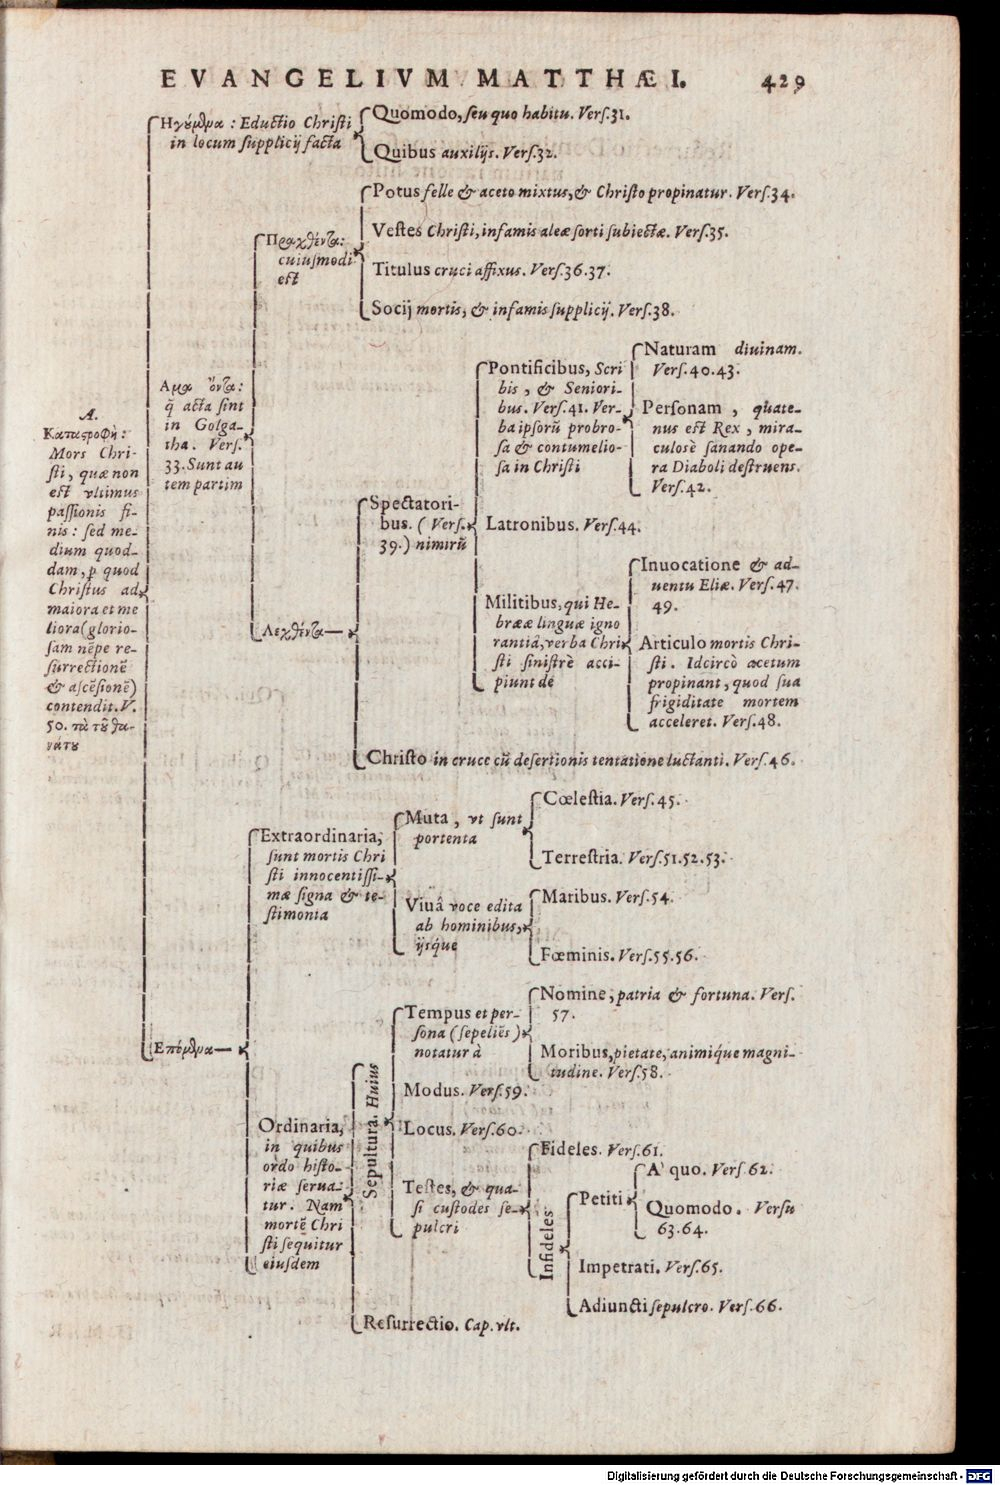 EVANGELIVM MATTHÆI. 429
A.
Καταςροφὴ:
Mors Chri-
sti, quæ non
est vltimus
passionis fi-
nis: sed me-
dium quod-
dam, p quod
Christus ad
maiora et me
liora (glorio-
sam nēpe re-
surrectionē
& ascēsionē)
contendit. V.
50. τὰ τȣ̃ θα-
νάτȣ
Ηγȣ́μθμα: Eductio Christi
in locum supplicij facta
Quomodo, seu quo habitu. Vers. 31.
Quibus auxilijs. Vers. 32.
Αμα ὄντα:
q̃ acta sint
in Golga-
tha. Vers.
33. Sunt au
tem partim
Πραχθέντα:
cuiusmodi
est
Potus felle & aceto mixtus, & Christo propinatur. Vers. 34.
Vestes Christi, infamis aleæ sorti subiectæ. Vers. 35.
Titulus cruci affixus. Vers. 36. 37.
Socij mortis, & infamis supplicij. Vers. 38.
Λεχθέντα
Spectatori-
bus. (Vers.
39.) nimirũ
Pontificibus, Scri
bis, & Seniori-
bus. Vers. 41. Ver-
ba ipsorũ probro-
sa & contumelio-
sa in Christi
Naturam diuinam.
Vers. 40. 43.
Personam, quate-
nus est Rex, mira-
culosè sanando ope-
ra Diaboli destruens.
Vers. 42.
Latronibus. Vers. 44.
Militibus, qui He-
brææ linguæ igno
rantiâ, verba Chri
sti sinistrè acci-
piunt de
Inuocatione & ad-
uentu Eliæ. Vers. 47.
49.
Articulo mortis Chri-
sti. Idcircò acetum
propinant, quod sua
frigiditate mortem
acceleret. Vers. 48.
Christo in cruce cũ desertionis tentatione luctanti. Vers. 46.
Επόμθμα
Extraordinaria,
sunt mortis Chri
sti innocentissi-
mæ signa & te-
stimonia
Muta, vt sunt
portenta
Cœlestia. Vers. 45.
Terrestria. Vers. 51. 52. 53.
Viuâ voce edita
ab hominibus,
ijsq́ue
Maribus. Vers. 54.
Fœminis. Vers. 55. 56.
Ordinaria,
in quibus
ordo histo-
riæ serua-
tur. Nam
mortē Chri
sti sequitur
eiusdem
Sepultura. Huius
Tempus et per-
sona (sepeliēs)
notatur à
Nomine, patria & fortuna. Vers.
57.
Moribus, pietate, animiq́ue magni-
tudine. Vers. 58.
Modus. Vers. 59.
Locus. Vers. 60.
Testes, & qua-
si custodes se-
pulcri
Fideles. Vers. 61.
Infideles
Petiti
A' quo. Vers. 62.
Quomodo. Versu
63. 64.
Impetrati. Vers. 65.
Adiuncti sepulcro. Vers. 66.
Resurrectio. Cap. vlt.
Digitalisierung gefördert durch die Deutsche Forschungsgemeinschaft - DFG